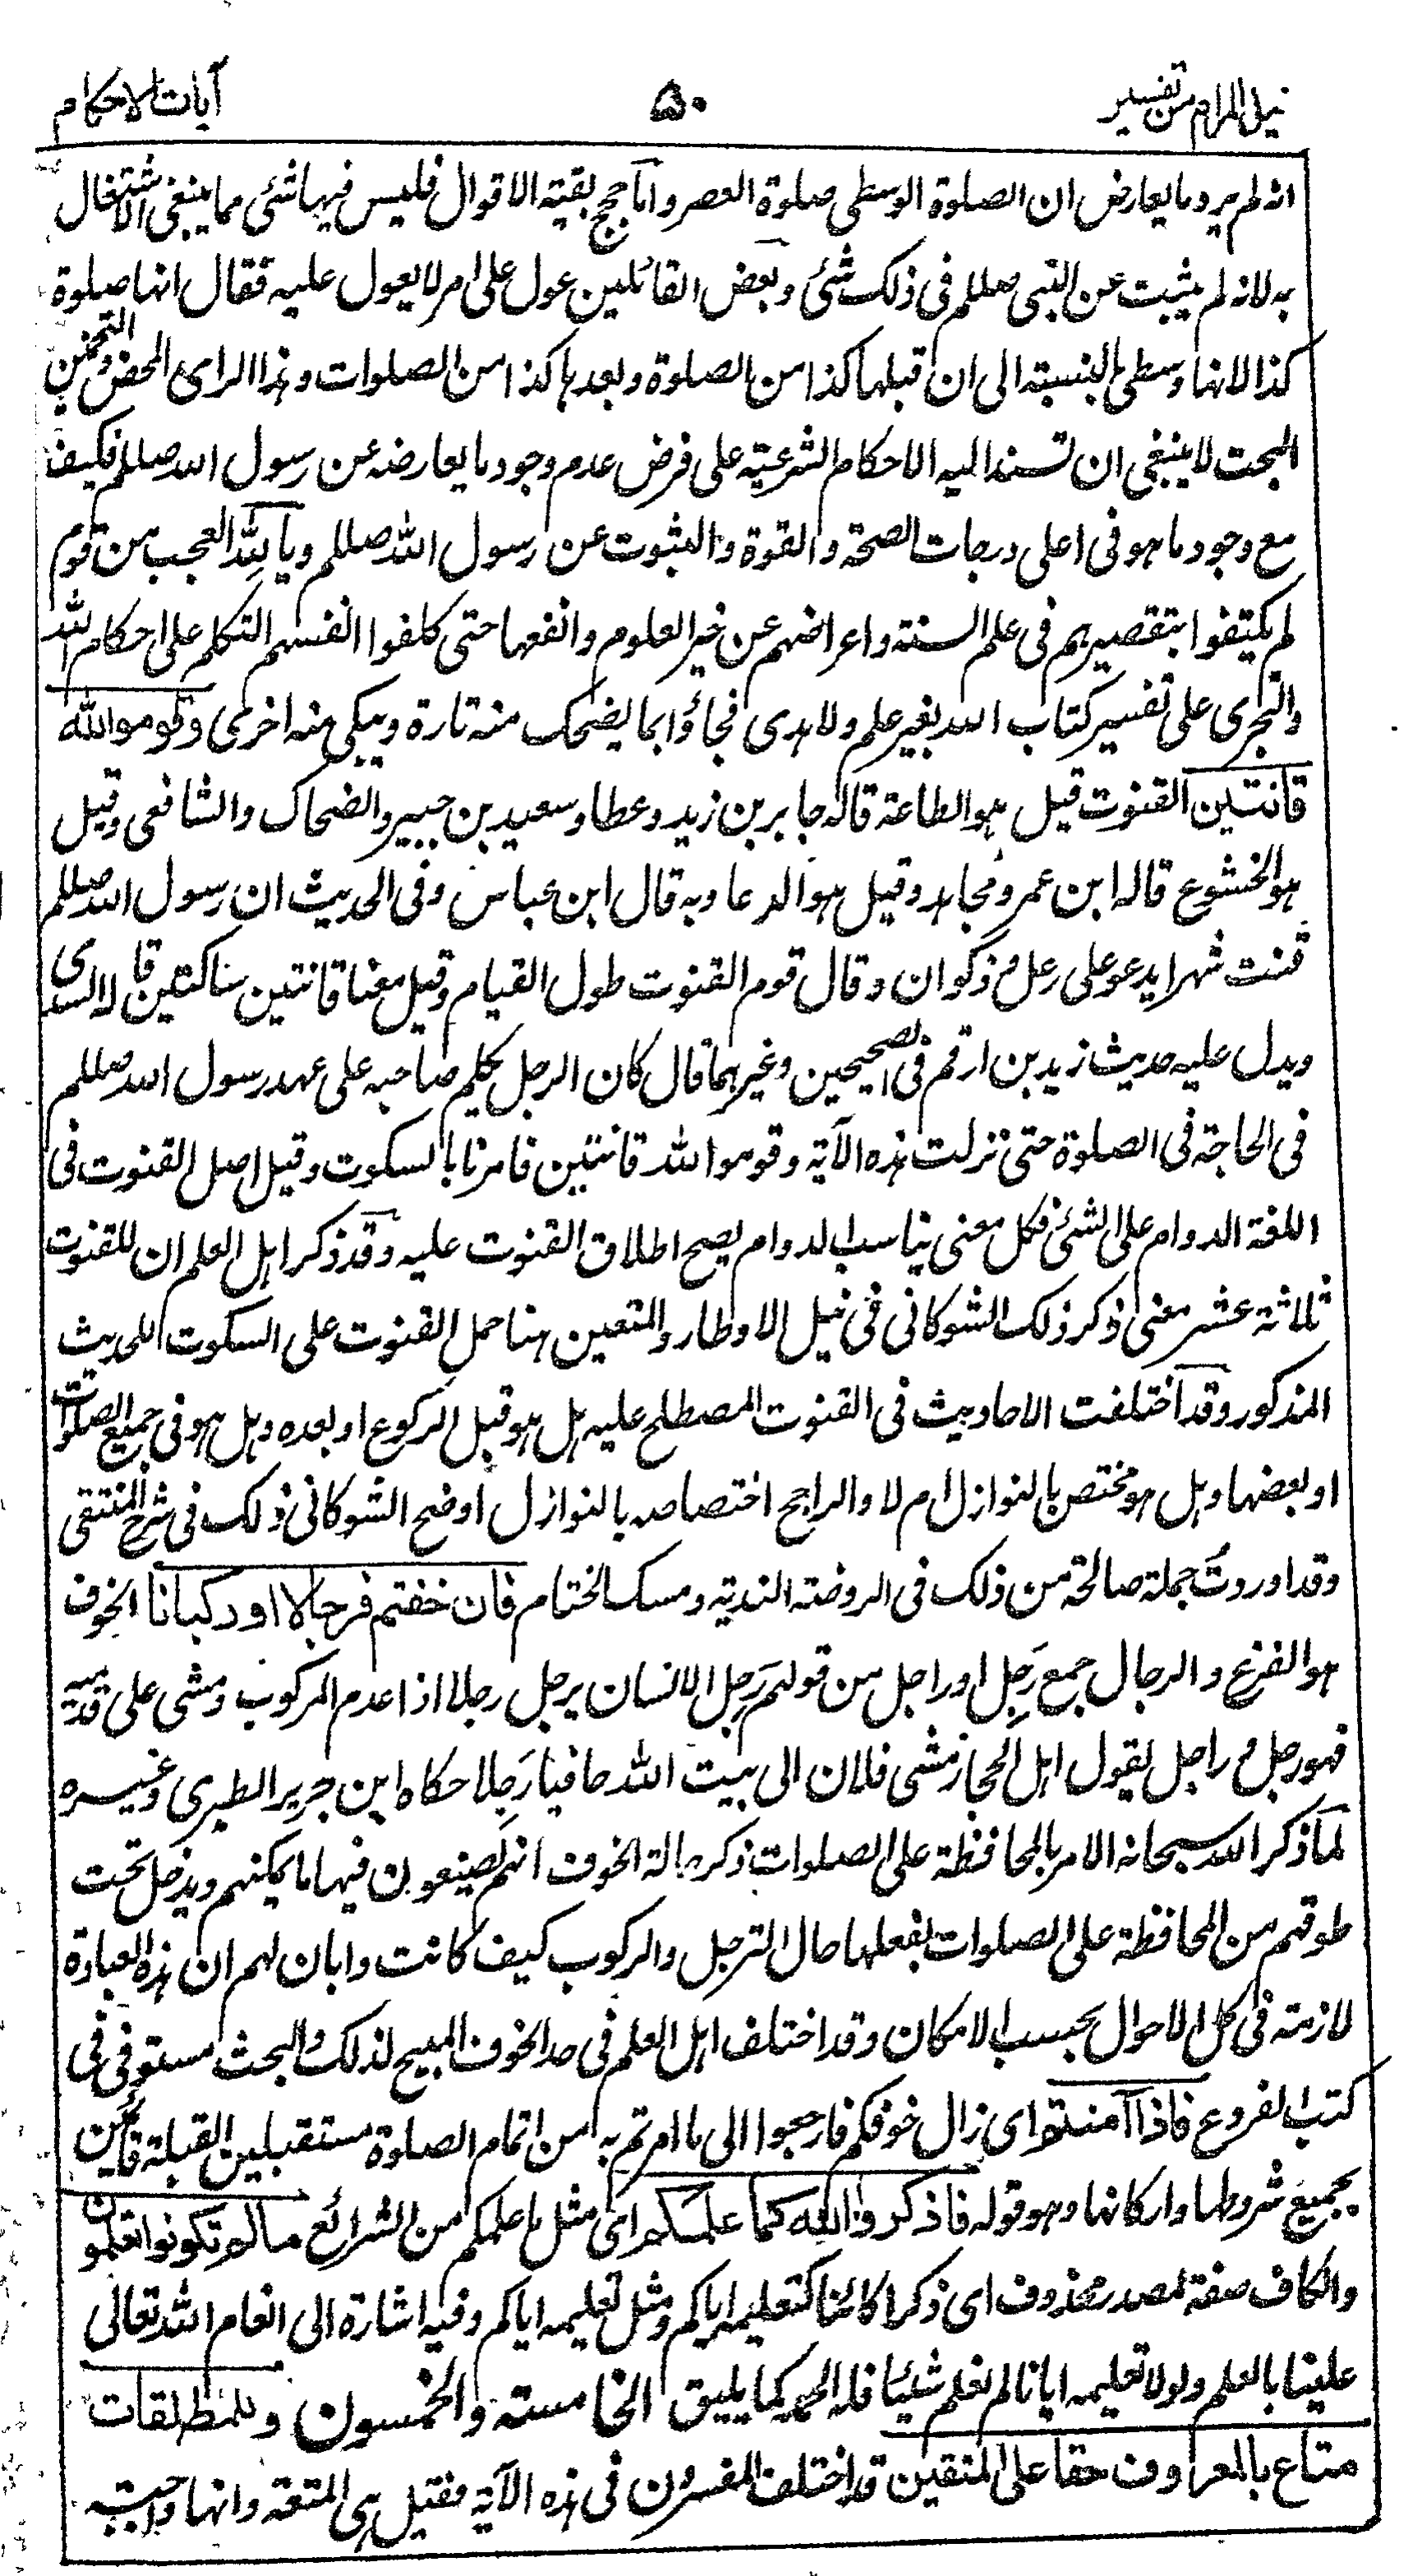 نيل المرام من تفسير
٥٠
آيات الاحكام
انه لم يرد ما يعارض ان الصلوة الوسطى صلوة العصر واما حجج بقية الاقوال فليس فيها شئ مما ينبغى الاشتغال
به لانه لم يثبت عن النبى صللم فى ذلك شئ وبعض القائلين عول على امر لا يعول عليه فقال انها صلوة
كذا لانها وسطى بالنسبته الى ان قبلها كذا من الصلوة وبعدها كذا من الصلوات وهذا الراى المحض والتخمين
البحت لا ينبغى ان تسند اليه الاحكام الشرعية على فرض عدم وجود ما يعارضه عن رسول الله صللم فكيف
مع وجود ما هو فى اعلى درجات الصحة والقوة والثبوت عن رسول الله صللم ويا لله العجب من قوم
لم يكتفوا بتقصيرهم فى علم السنة واعراضهم عن خير العلوم وانفعها حتى كلفوا انفسهم التكلم على احكام الله
والتجرى على تفسير كتاب الله بغير علم ولا هدى فجاؤا بما يضحك منه تارة ويبكى منه اخرى وقوموا لله
قانتين القنوت قيل هو الطاعة قاله جابر بن زيد وعطا وسعيد بن جبير والضحاك والشافعى وقيل
هو الخشوع قاله ابن عمر ومجاهد وقيل هو الدعا وبه قال ابن عباس وفى الحديث ان رسول الله صللم
قنت شهرا يدعو على رعل وذكوان وقال قوم القنوت طول القيام وقيل معناه قانتين ساكتين قاله السدى
ويدل عليه حديث زيد بن ارقم فى الصحيحين وغيرهما قال كان الرجل يكلم صاحبه على عهد رسول الله صللم
فى الحاجة فى الصلوة حتى نزلت هذه الآية وقوموا لله قانتين فامرنا بالسكوت وقيل اصل القنوت فى
اللغة الدوام على الشئ فكل معنى يناسب الدوام يصح اطلاق القنوت عليه وقد ذكر اهل العلم ان للقنوت
ثلاثة عشر معنى ذكر ذلك الشوكانى فى نيل الاوطار والمتعين هنا حمل القنوت على السكوت للحديث
المذكور وقد اختلفت الاحاديث فى القنوت المصطلح عليه هل هو قبل الركوع او بعده وهل هو فى جميع الصلوات
او بعضها وهل هو مختص بالنوازل ام لا والراجح اختصاصه بالنوازل اوضح الشوكانى ذلك فى شرح المنتقى
وقد اوردت جملة صالحة من ذلك فى الروضة الندية ومسك الختام فان خفتم فرجالا او ركبانا الخوف
هو الفزع والرجال جمع رَجِل او راجل من قولهم رَجِل الانسان يرجل رجلا اذا عدم المركوب ومشى على قدميه
فهو رجل و راجل يقول اهل الحجاز مشى فلان الى بيت الله حافيا رَجِلا حكاه ابن جرير الطبرى وغيره
لما ذكر الله سبحانه الامر بالمحافظة على الصلوات ذكر حالة الخوف انهم يصنعون فيها ما يمكنهم ويدخل تحت
طوقهم من المحافظة على الصلوات بفعلها حال الترجل والركوب كيف كانت وابان لهم ان هذه العبادة
لازمة فى كل الاحوال بحسب الامكان وقد اختلف اهل العلم فى حد الخوف المبيح لذلك والبحث مستوفى فى
كتب الفروع فاذا آمنتم اى زال خوفكم فارجعوا الى ما امرتم به من اتمام الصلوة مستقبلين القبلة قائمين
بجميع شروطها واركانها وهو قوله فاذكروا الله كما علمكم اى مثل ما علمكم من الشرائع ما لم تكونوا تعلمون
والكاف صفة لمصدر محذوف اى ذكرا كائنا كتعليمه اياكم ومثل تعليمه اياكم وفيه اشارة الى انعام الله تعالى
علينا بالعلم ولولا تعليمه ايانا لم نعلم شيئا فله الحمد كما يليق الخامسة والخمسون وللمطلقات
متاع بالمعروف حقا على المتقين قد اختلف المفسرون فى هذه الآية فقيل هى المتعة وانها واجبة